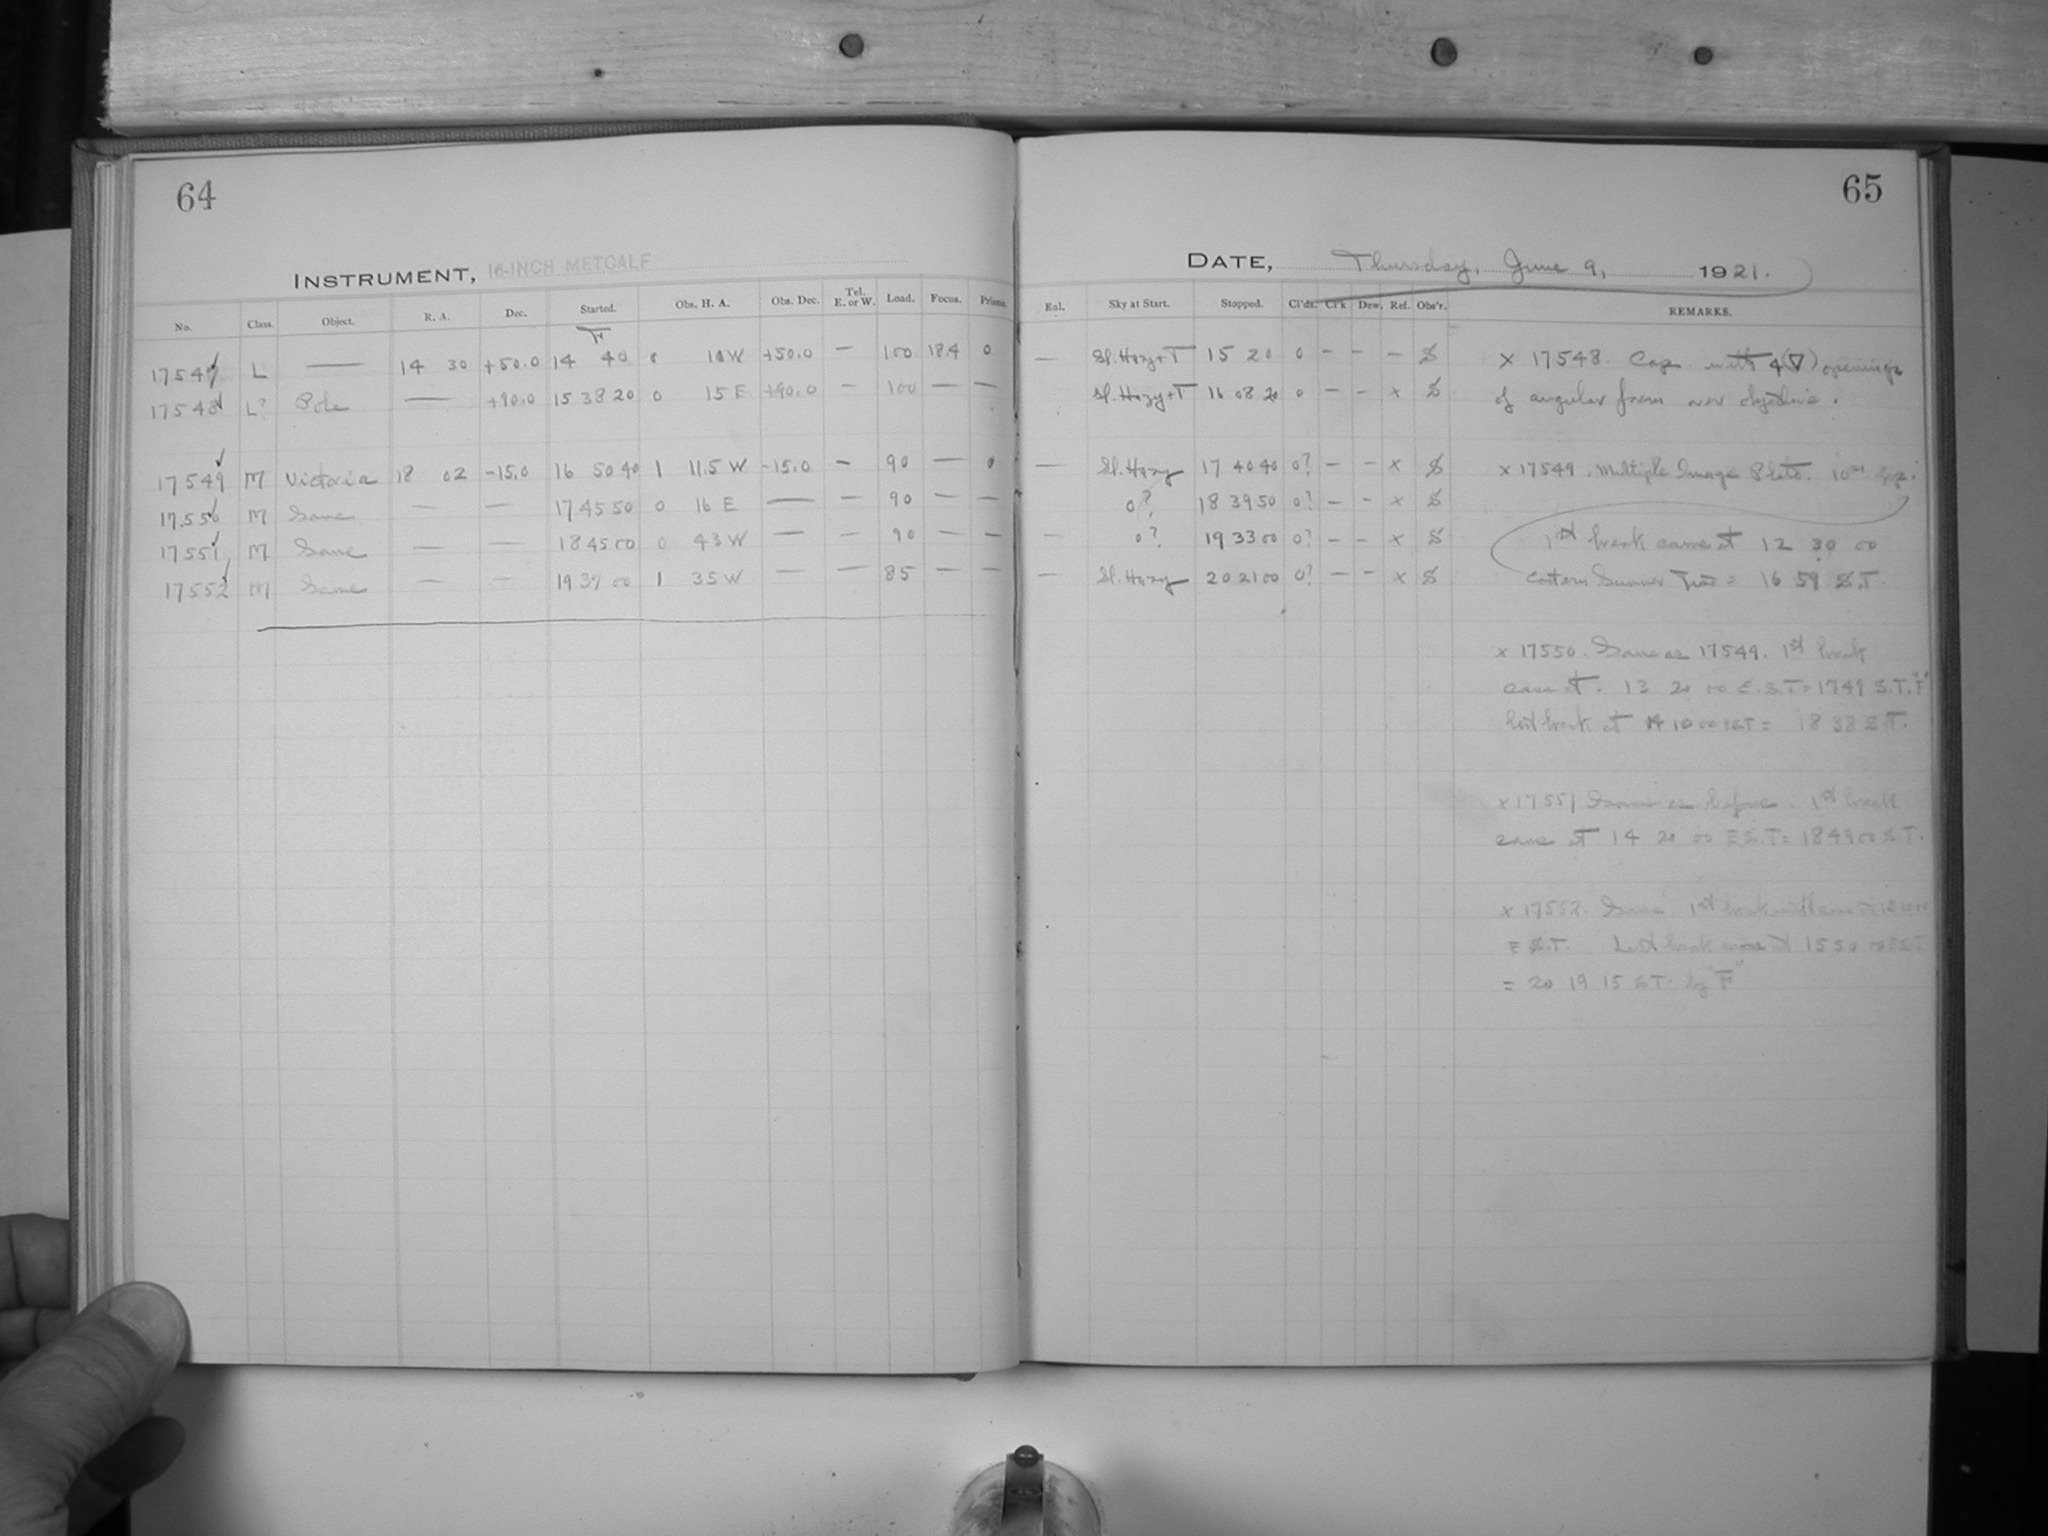 64
INSTRUMENT, 16-INCH METCALF
No. Class. Object. R. A. Dec. Started. Obs. H. A. Obs. Dec. Tel. E. or W. Load. Focus. Prisms.
F
17547 L — 14 30 +50.0 14 40 0 10 W +50.0 — 100 18.4 0
17548 L? Pole — +90.0 15 38 20 0 15 E +90.0 — 100 — —
17549 M Victoria 18 02 -15.0 16 50 40 1 11.5 W -15.0 — 90 — 0
17550 M Same — — 17 45 50 0 16 E — — 90 — —
17551 M Same — — 18 45 00 0 43 W — — 90 — —
17552 M Same — — 19 37 00 1 35 W — — 85 — —
65
DATE, Thursday, June 9, 1921.
Exl. Sky at Start. Stopped. Cl'ds. Cl'k. Dew. Ref. Obs'r. REMARKS.
— Sl. Hazy+T 15 20 0 — — — S
Sl. Hazy+T 16 08 20 0 — — x S
— Sl. Hazy 17 40 40 0? — — x S
0? 18 39 50 0? — — x S
— 0? 19 33 00 0? — — x S
— Sl. Hazy 20 21 00 0? — — x S
x 17548. Cap with 4 (▽) openings
of angular form over objective.
x 17549. Multiple Image Plate. 10m Exp.
1st break came at 12 30 00
Eastern Summer Time = 16 59 S.T.
x 17550. Same as 17549. 1st break
came at. 13 20 00 E.S.T = 1749 S.T. "F"
last break at 14 10 00 EST = 18 38 S.T.
x 17551 Same as before. 1st break
came at 14 20 00 E.S.T = 18 49 00 S.T.
x 17552. Same. 1st break
E.S.T. Last break came at 15 50 00 EST
= 20 19 15 ST. by "F"